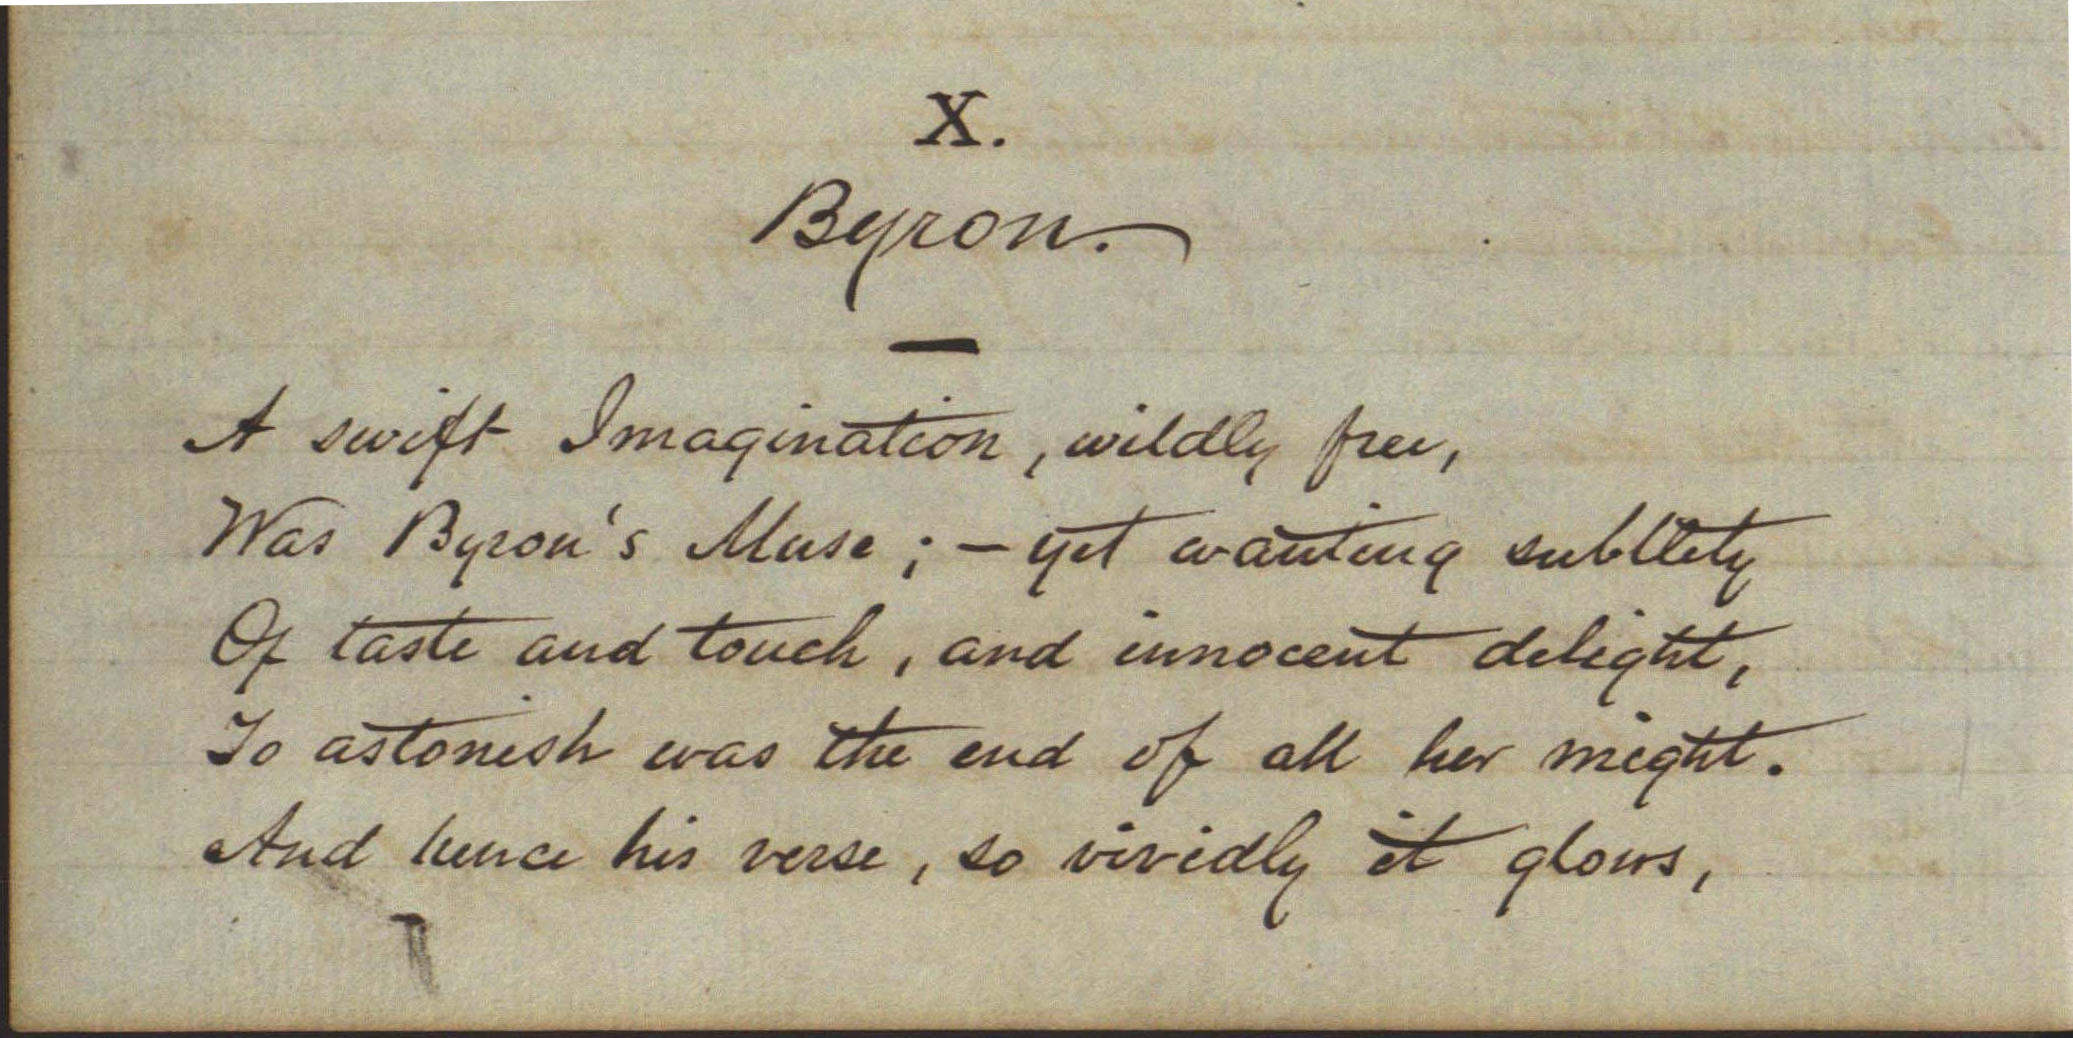 X.
Byron.
—
A swift Imagination, wildly free,
Was Byron's Muse; – yet wanting subtlety
Of taste and touch, and innocent delight,
To astonish was the end of all her might.
And hence his verse, so vividly it glows,